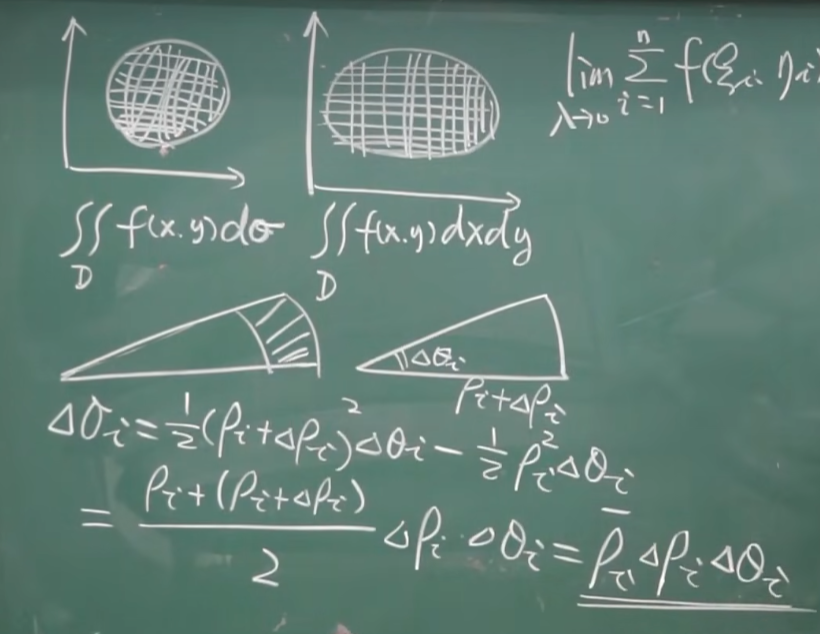 lim_{λ→0} Σ_{i=1}^{n} f(ξ_i, η_i)
∬_D f(x,y)dσ
∬_D f(x,y)dxdy
Δθ_i
ρ_i+Δρ_i
Δσ_i = 1/2(ρ_i+Δρ_i)^2 Δθ_i − 1/2 ρ_i^2 Δθ_i
= (ρ_i+(ρ_i+Δρ_i))/2 Δρ_i·Δθ_i = ρ̄_i Δρ_i Δθ_i